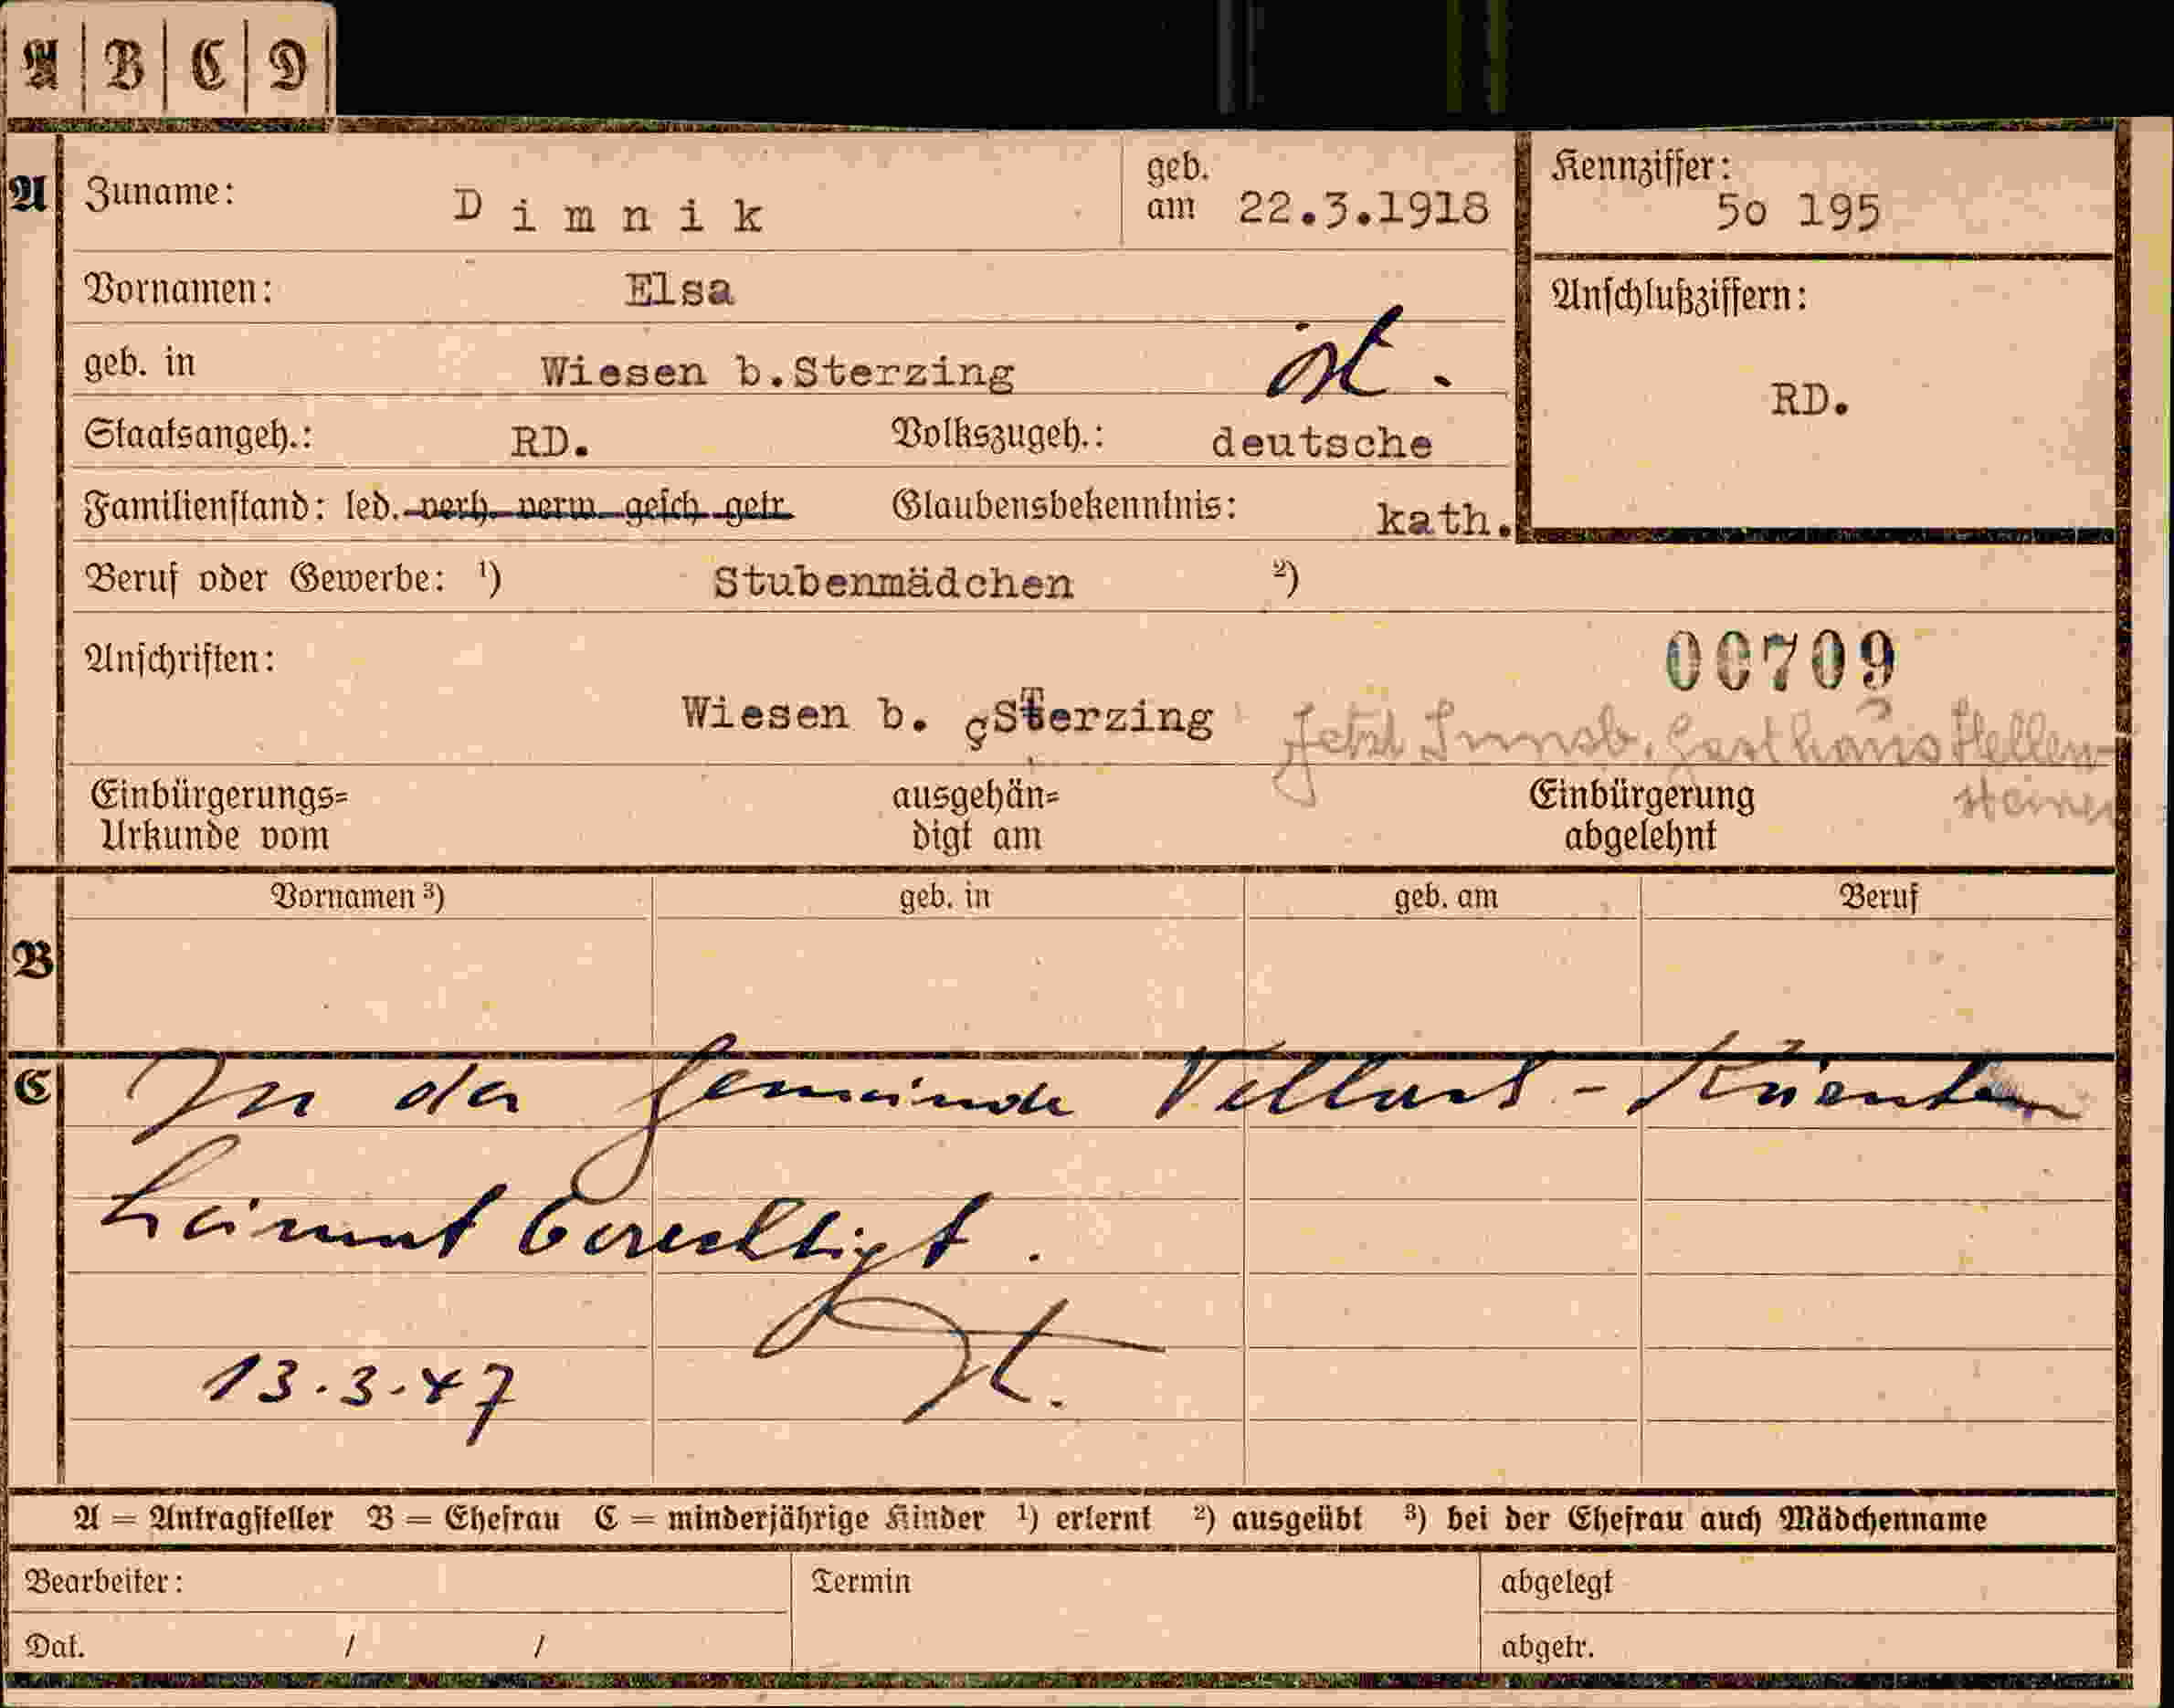 A | B | C | D
A Zuname: Dimnik geb. am 22.3.1918 Kennziffer: 5o 195
Vornamen: Elsa Anschlußziffern:
geb. in Wiesen b.Sterzing öst. RD.
Staatsangeh.: RD. Volkszugeh.: deutsche
Familienstand: led. verh. verw. gesch. getr. Glaubensbekenntnis: kath.
Beruf oder Gewerbe: ¹) Stubenmädchen ²)
00709
Anschriften:
Wiesen b. çSterzing Jetzt Innsb. Gasthaus Hellen-
steiner
Einbürgerungs= ausgehän= Einbürgerung
Urkunde vom digt am abgelehnt
Vornamen ³) geb. in geb. am Beruf
B
C In der Gemeinde - Kärnten
heimatberechtigt.
13.3.47
A = Antragsteller B = Ehefrau C = minderjährige Kinder ¹) erlernt ²) ausgeübt ³) bei der Ehefrau auch Mädchenname
Bearbeiter: Termin abgelegt
Dat. / / abgetr.